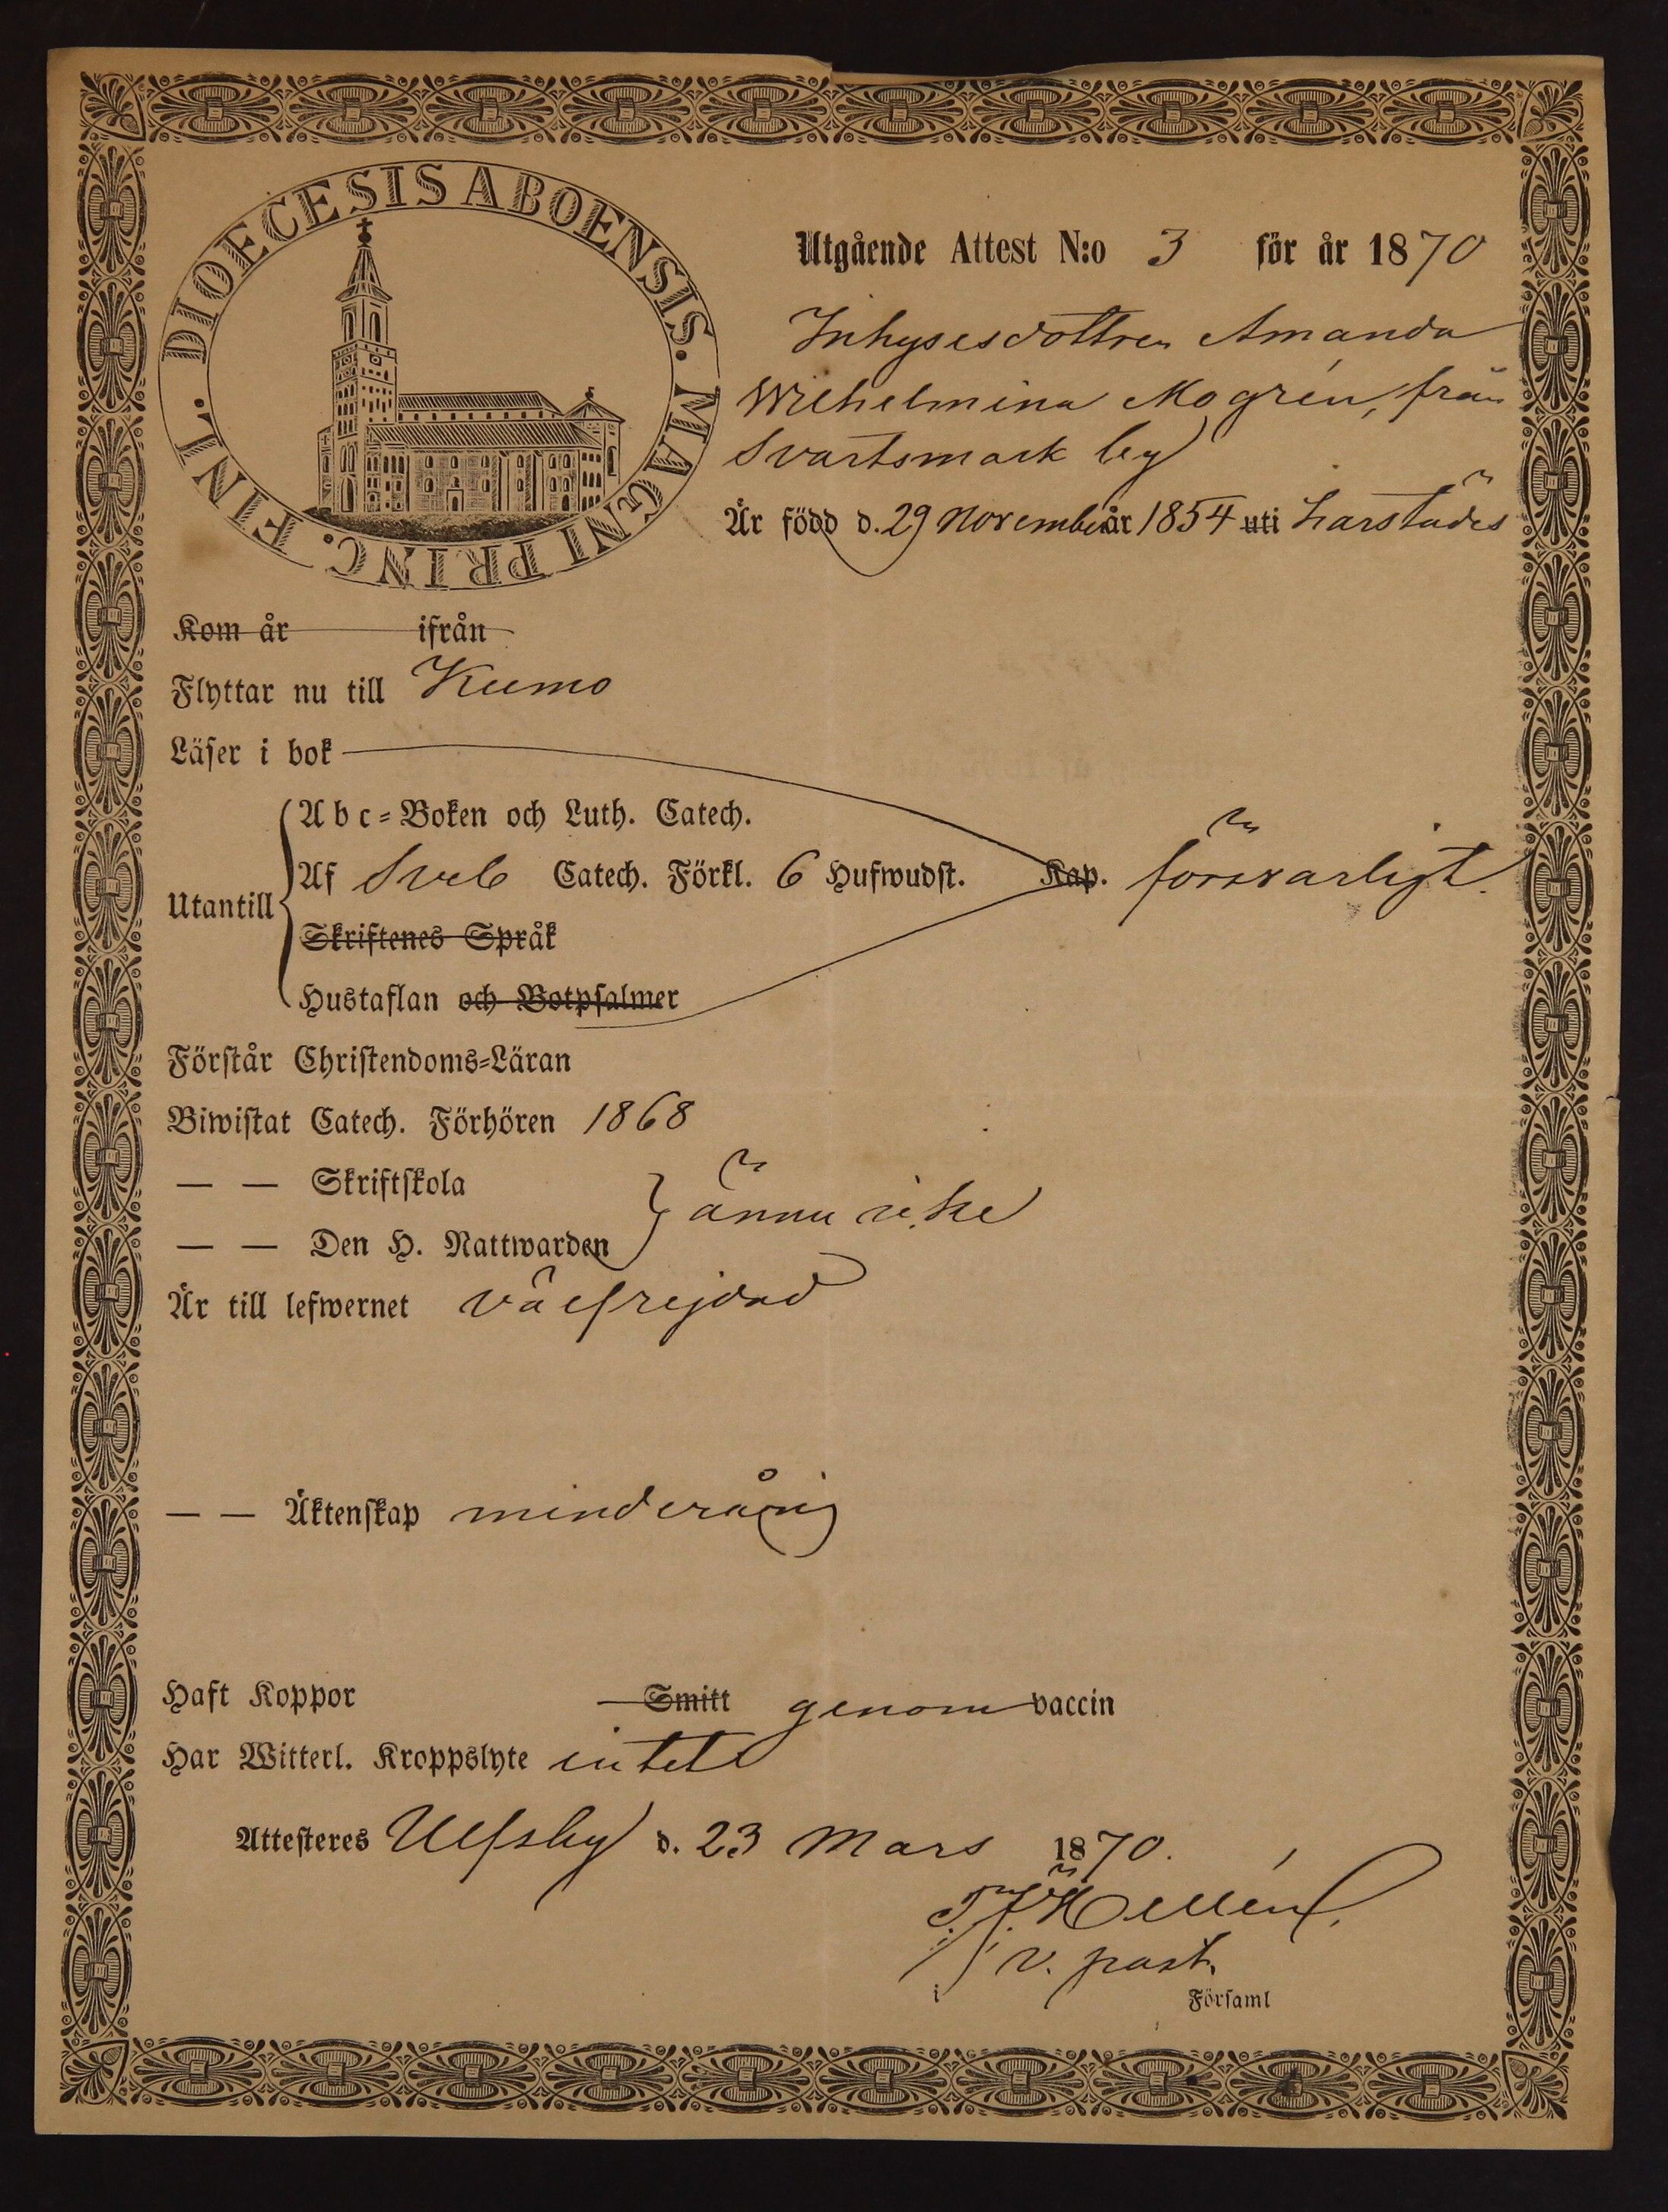 DIOECESIS ABOENSIS. MAGNI PRINC. FINL.
Utgående Attest N:o 3 för år 1870
Inhysesdottren Amanda
Wilhelmina Mogrén, från
Svartsmark by
Är född d. 29 November år 1854 uti härstädes
Kom år ifrån
Flyttar nu till Kumo
Läser i bok
Utantill
Abc-Boken och Luth. Catech.
Af Sveb Catech. Förkl. 6 Hufwudst. Kap. försvarligt.
Skriftenes Språk
Hustaflan och Botpsalmer
Förstår Christendoms-Läran
Biwistat Catech. Förhören 1868
— — Skriftskola
ännu icke
— — Den H. Nattwarden
Är till lefwernet välfrejdad
— — Äktenskap minderårig
Haft Koppor Smitt genom vaccin
Har Witterl. Kroppslyte intet
Attesteres Ulfsby d. 23 Mars 1870.
Hellén.
v. past.
i Församl